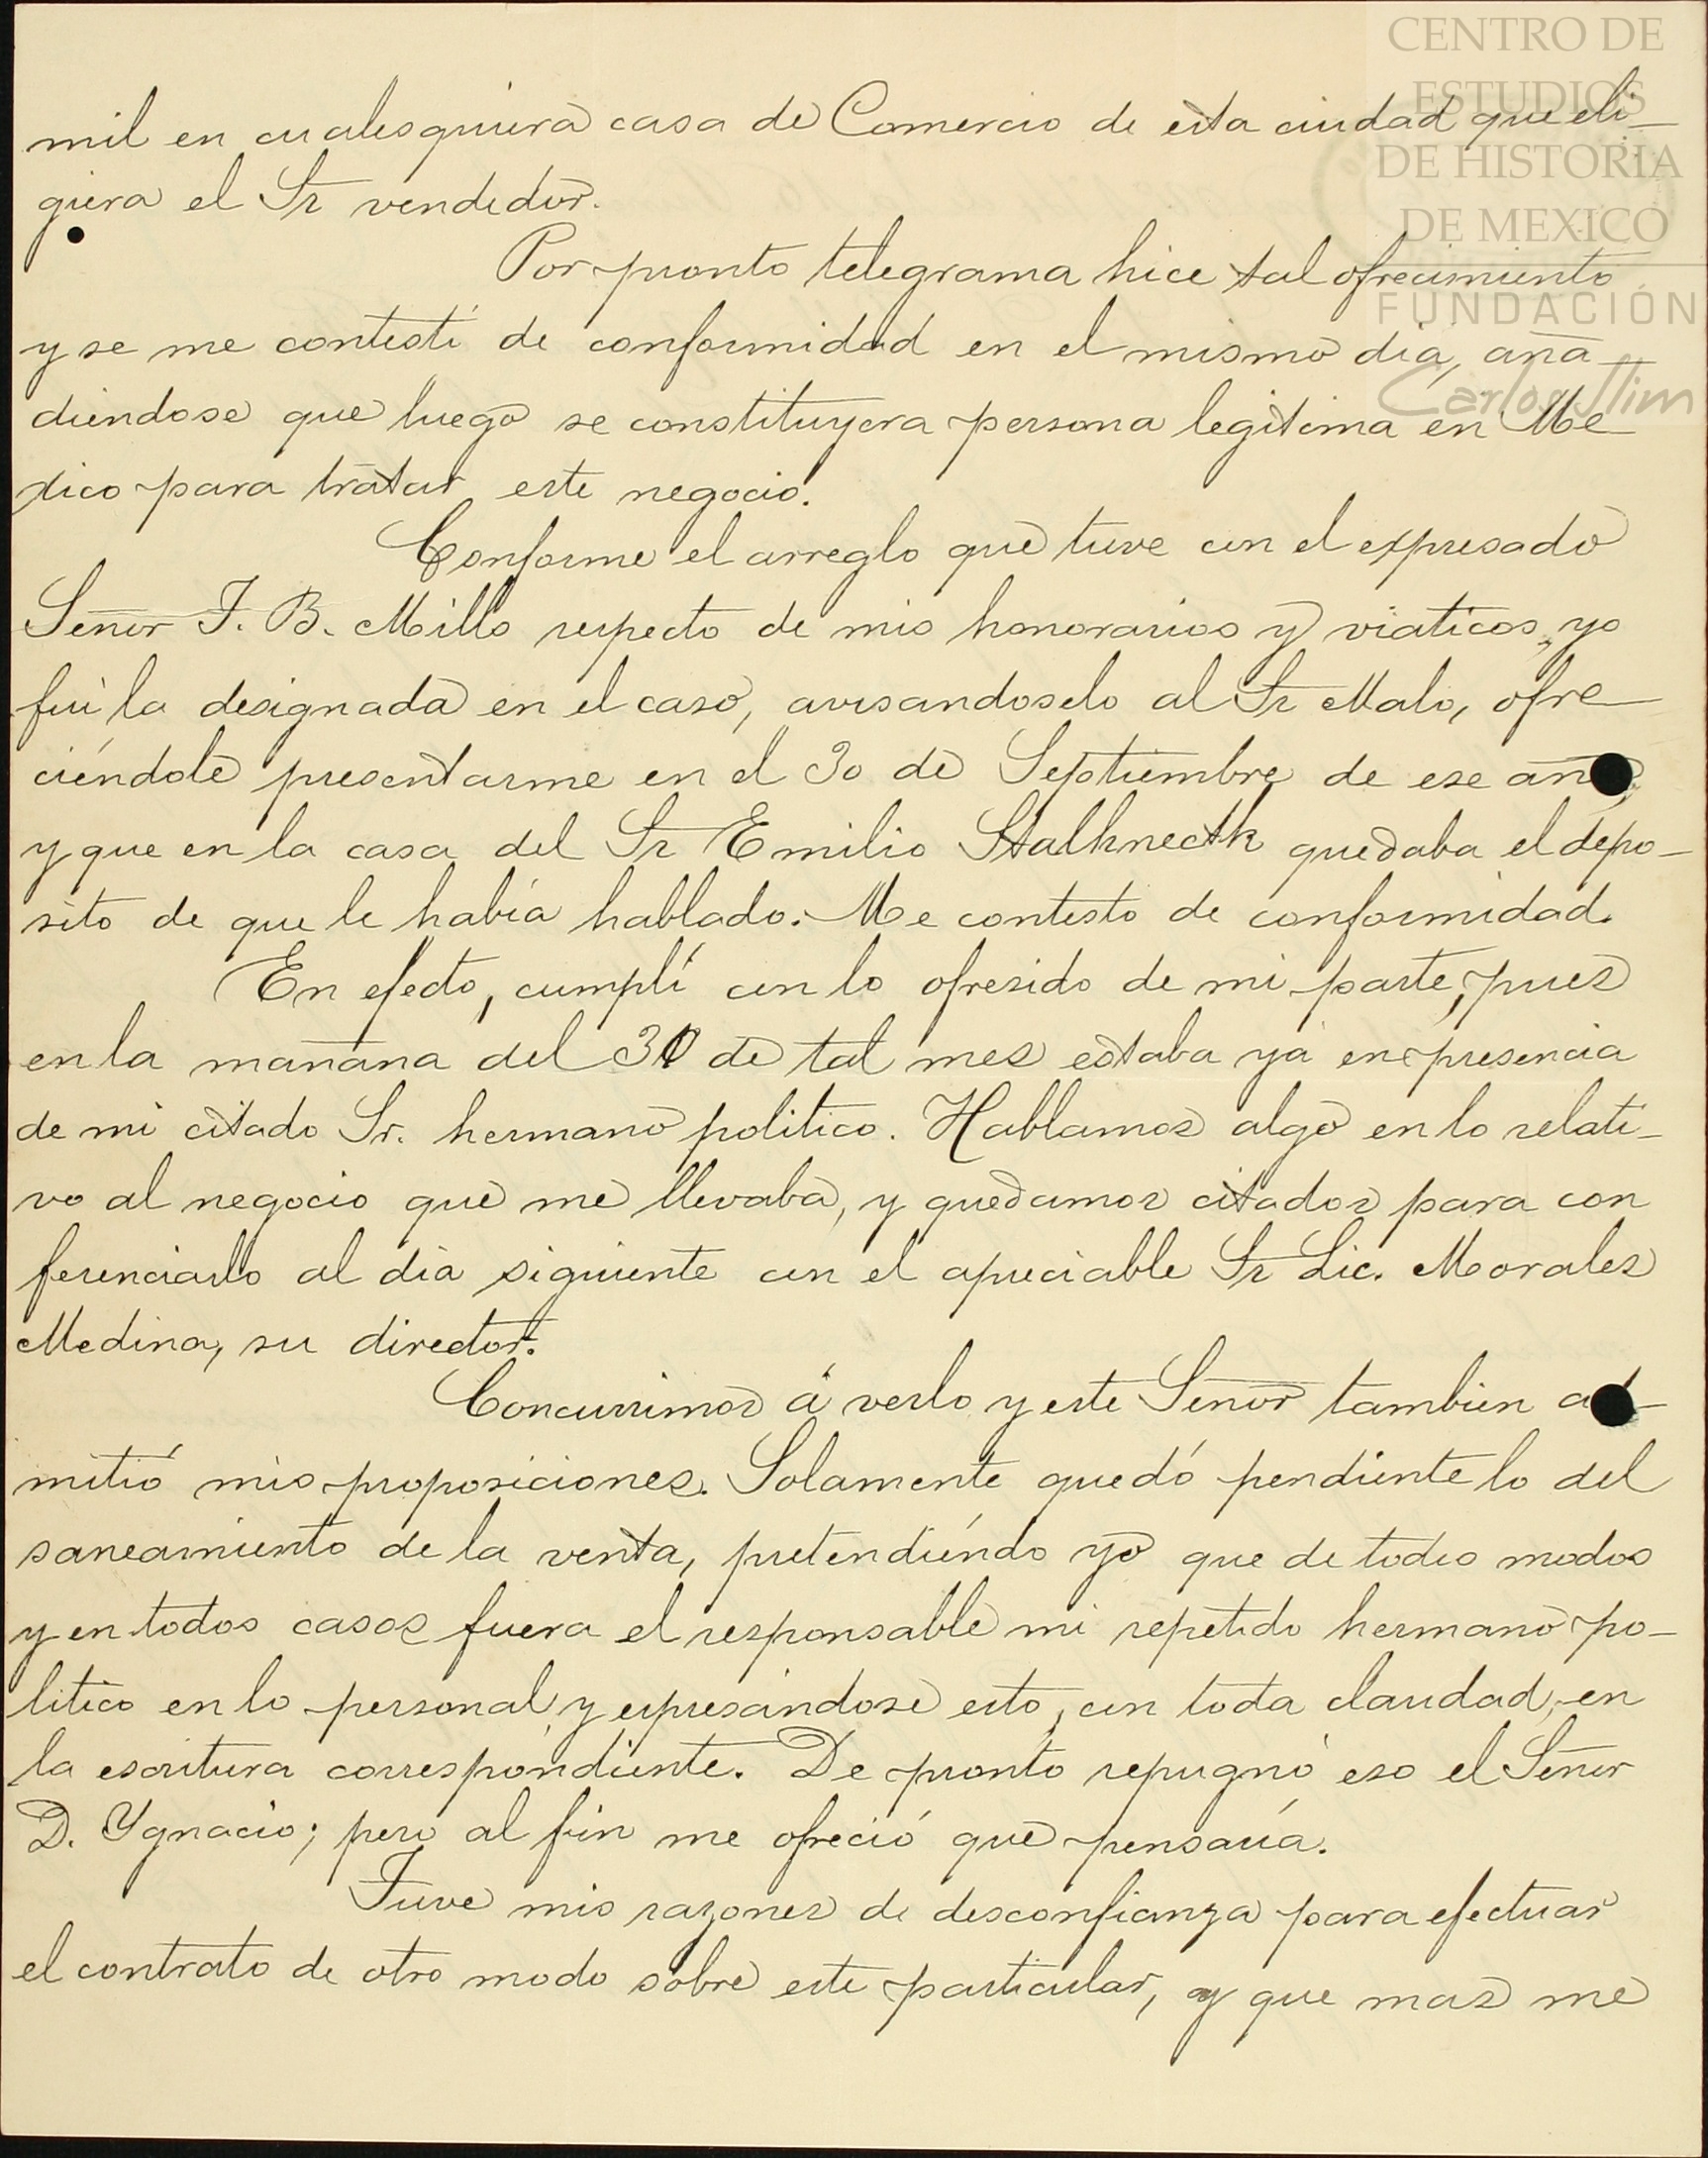 CENTRO DE
ESTUDIOS
DE HISTORIA
DE MEXICO
FUNDACIÓN
Carlos Slim
mil en cualesquiera casa de Comercio de esta ciudad que eli-
giera el Sr vendedor.
Por pronto telegrama hice tal ofrecimiento
y se me contestó de conformidad en el mismo dia, aña-
diendose que luego se constituyera persona legitima en Me-
xico para tratar este negocio.
Conforme el arreglo que tuve con el expresado
Señor J. B. Mills respecto de mis honorarios y viaticos, yo
fui la designada en el caso, avisandoselo al Sr Malo, ofre-
ciéndole presentarme en el 30 de Septiembre de ese año,
y que en la casa del Sr Emilio Stalknecth quedaba el depo-
sito de que le había hablado. Me contesto de conformidad.
En efecto, cumplí con lo ofresido de mi parte, pues
en la mañana del 30 de tal mes estaba ya en presencia
de mi citado Sr. hermano politico. Hablamos algo en lo relati-
vo al negocio que me llevaba, y quedamos citados para con
ferenciarlo al dia siguiente con el apreciable Sr Lic. Morales
Medina, su director.
Concurrimos á verlo y este Señor tambien ad-
mitió mis proposiciones. Solamente quedó pendiente lo del
saneamiento de la venta, pretendiéndo yo que de todos modos
y en todos casos fuera el responsable mi repetido hermano po-
litico en lo personal, y expresándose esto, con toda claridad, en
la escritura correspondiente. De pronto repugnó eso el Señor
D. Ygnacio; pero al fin me ofreció que pensaría.
Tuve mis razones de desconfianza para efectuar
el contrato de otro modo sobre este particular, y que mas me